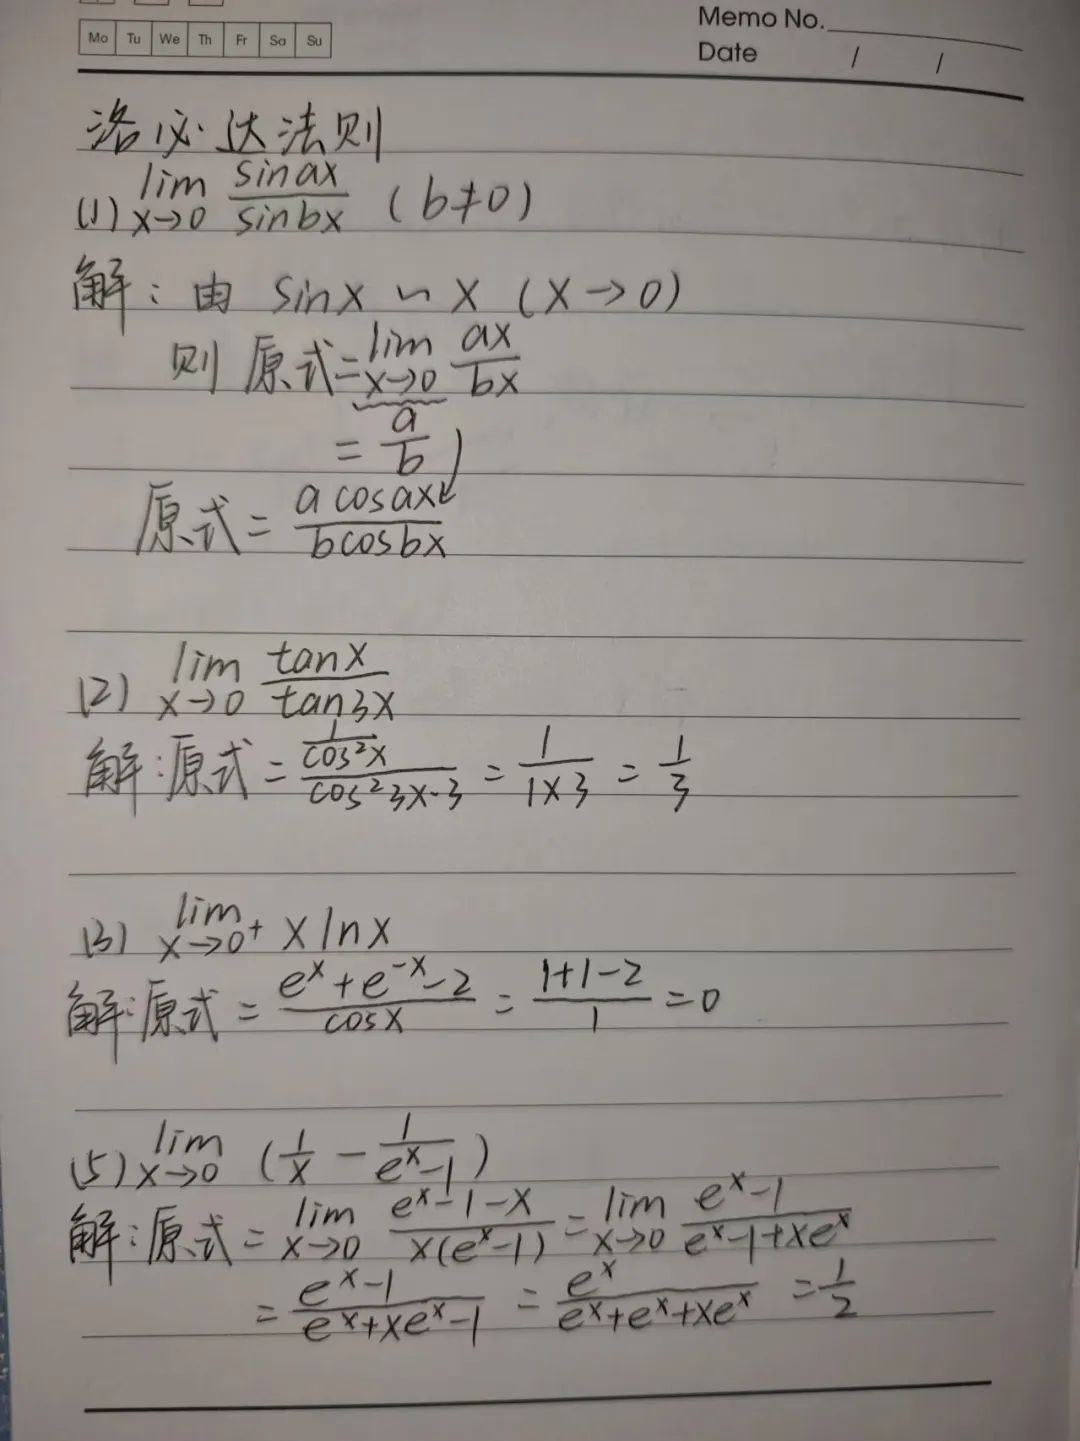 Mo Tu We Th Fr Sa Su
Memo No.
Date / /
洛必达法则
(1) lim x→0 sinax/sinbx (b≠0)
解: 由 sinx ∽ x (x→0)
则 原式=lim x→0 ax/bx
= a/b
原式= a cosax/bcosbx
(2) lim x→0 tanx/tan3x
解:原式 = (1/cos²x)/(cos²3x·3) = 1/(1×3) = 1/3
(3) lim x→0⁺ x lnx
解:原式 = (eˣ+e⁻ˣ-2)/cosx = (1+1-2)/1 =0
(5) lim x→0 (1/x - 1/(eˣ-1))
解:原式= lim x→0 (eˣ-1-x)/(x(eˣ-1)) = lim x→0 (eˣ-1)/(eˣ-1+xeˣ)
= (eˣ-1)/(eˣ+xeˣ-1) = eˣ/(eˣ+eˣ+xeˣ) = 1/2